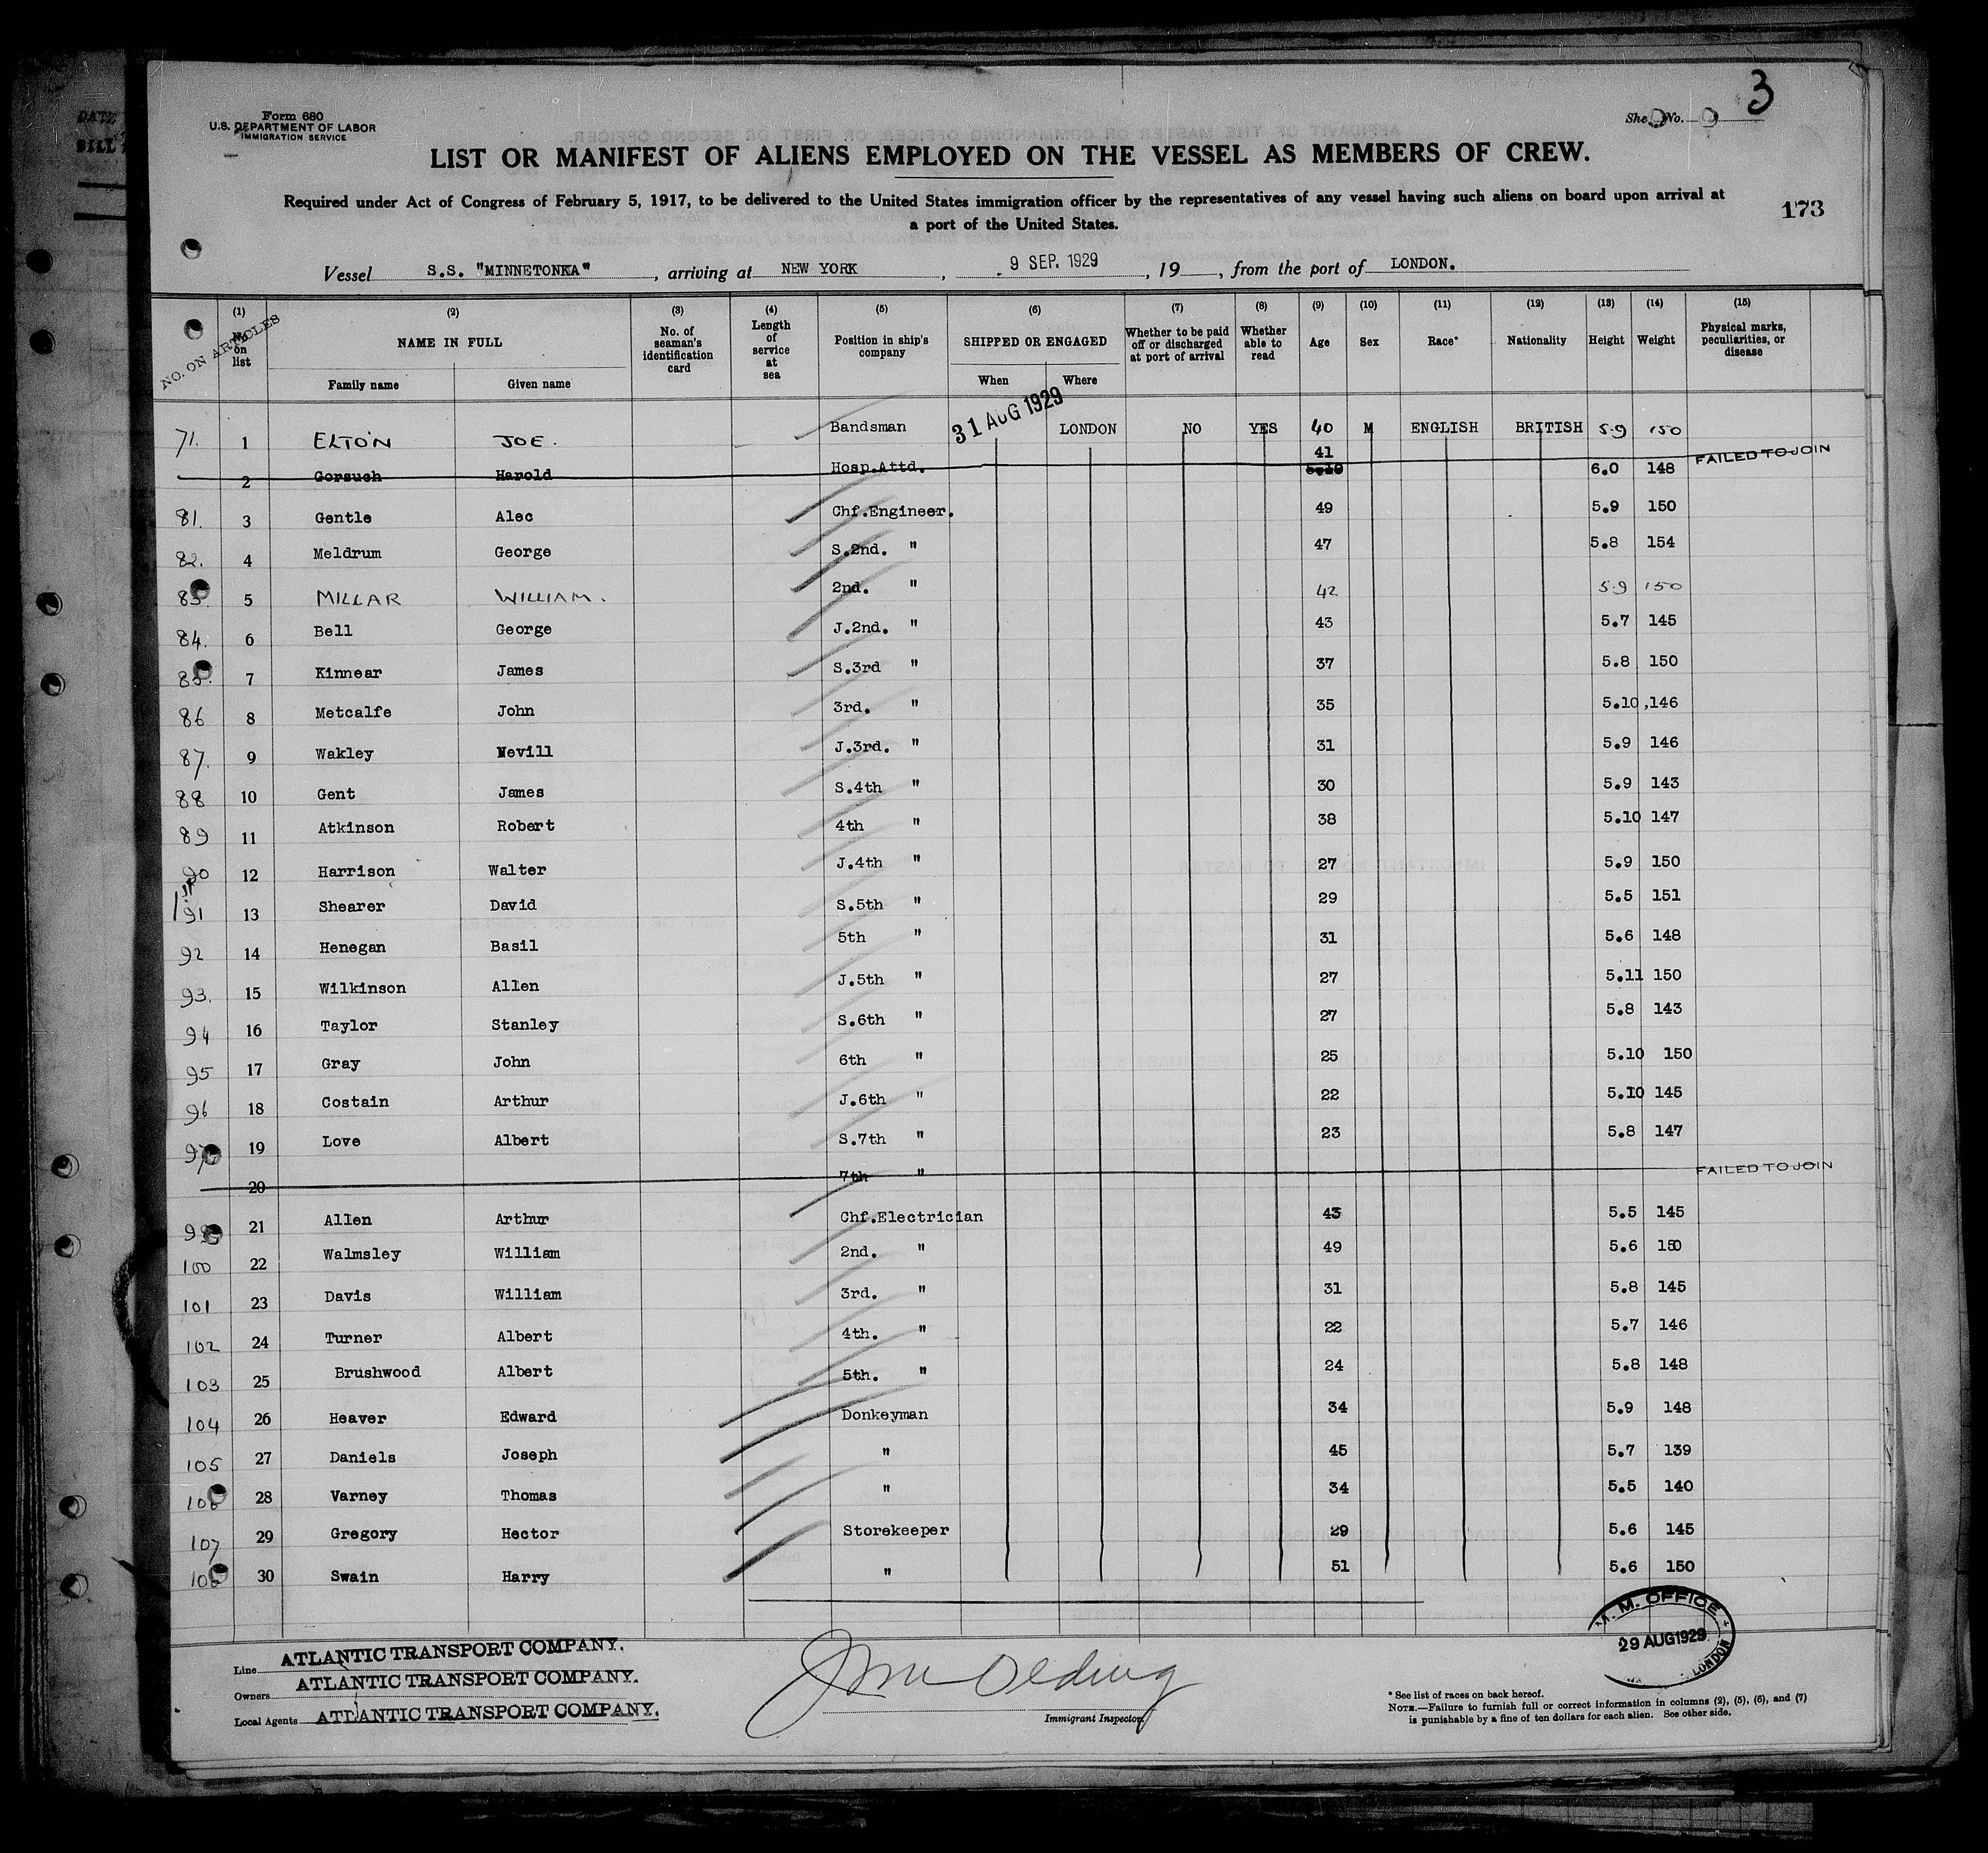 3
Form 680
U.S. DEPARTMENT OF LABOR
IMMIGRATION SERVICE
No.
LIST OR MANIFEST OF ALIENS EMPLOYED ON THE VESSEL AS MEMBERS OF CREW.
Required under Act of Congress of February 5, 1917, to be delivered to the United States immigration officer by the representatives of any vessel having such aliens on board upon arrival at
a port of the United States.
173
Vessel S.S. "MINNETONKA", arriving at NEW YORK, 9 SEP. 1929, 19, from the port of LONDON.
NO. ON ARTICLES
(1) No. on list (2) NAME IN FULL Family name Given name (3) No. of seaman's identification card (4) Length of service at sea (5) Position in ship's company (6) SHIPPED OR ENGAGED When Where (7) Whether to be paid off or discharged at port of arrival (8) Whether able to read (9) Age (10) Sex (11) Race* (12) Nationality (13) Height (14) Weight (15) Physical marks, peculiarities, or disease
71. 1 ELTON JOE. Bandsman 31 AUG 1929 LONDON NO YES 40 M ENGLISH BRITISH 5.9 150
2 Gorsuch Harold Hosp.Attd. 41 6.0 148 FAILED TO JOIN
81. 3 Gentle Alec Chf.Engineer. 49 5.9 150
82. 4 Meldrum George S.2nd. " 47 5.8 154
83. 5 MILLAR WILLIAM. 2nd. " 42 5.9 150
84. 6 Bell George J.2nd. " 43 5.7 145
85. 7 Kinnear James S.3rd " 37 5.8 150
86 8 Metcalfe John 3rd. " 35 5.10 146
87. 9 Wakley Nevill J.3rd. " 31 5.9 146
88 10 Gent James S.4th " 30 5.9 143
89 11 Atkinson Robert 4th " 38 5.10 147
90 12 Harrison Walter J.4th " 27 5.9 150
91 13 Shearer David S.5th " 29 5.5 151
92 14 Henegan Basil 5th " 31 5.6 148
93. 15 Wilkinson Allen J.5th " 27 5.11 150
94 16 Taylor Stanley S.6th " 27 5.8 143
95 17 Gray John 6th " 25 5.10 150
96 18 Costain Arthur J.6th " 22 5.10 145
97 19 Love Albert S.7th " 23 5.8 147
20 7th " FAILED TO JOIN
21 Allen Arthur Chf.Electrician 43 5.5 145
100 22 Walmsley William 2nd. " 49 5.6 150
101 23 Davis William 3rd. " 31 5.8 145
102 24 Turner Albert 4th. " 22 5.7 146
103 25 Brushwood Albert 5th. " 24 5.8 148
104 26 Heaver Edward Donkeyman 34 5.9 148
105 27 Daniels Joseph " 45 5.7 139
106 28 Varney Thomas " 34 5.5 140
107 29 Gregory Hector Storekeeper 29 5.6 145
108 30 Swain Harry " 51 5.6 150
M. M. OFFICE
29 AUG 1929
LONDON
Line ATLANTIC TRANSPORT COMPANY.
Owners ATLANTIC TRANSPORT COMPANY.
Local Agents ATLANTIC TRANSPORT COMPANY.
Immigrant Inspector.
* See list of races on back hereof.
NOTE.—Failure to furnish full or correct information in columns (2), (5), (6), and (7)
is punishable by a fine of ten dollars for each alien. See other side.